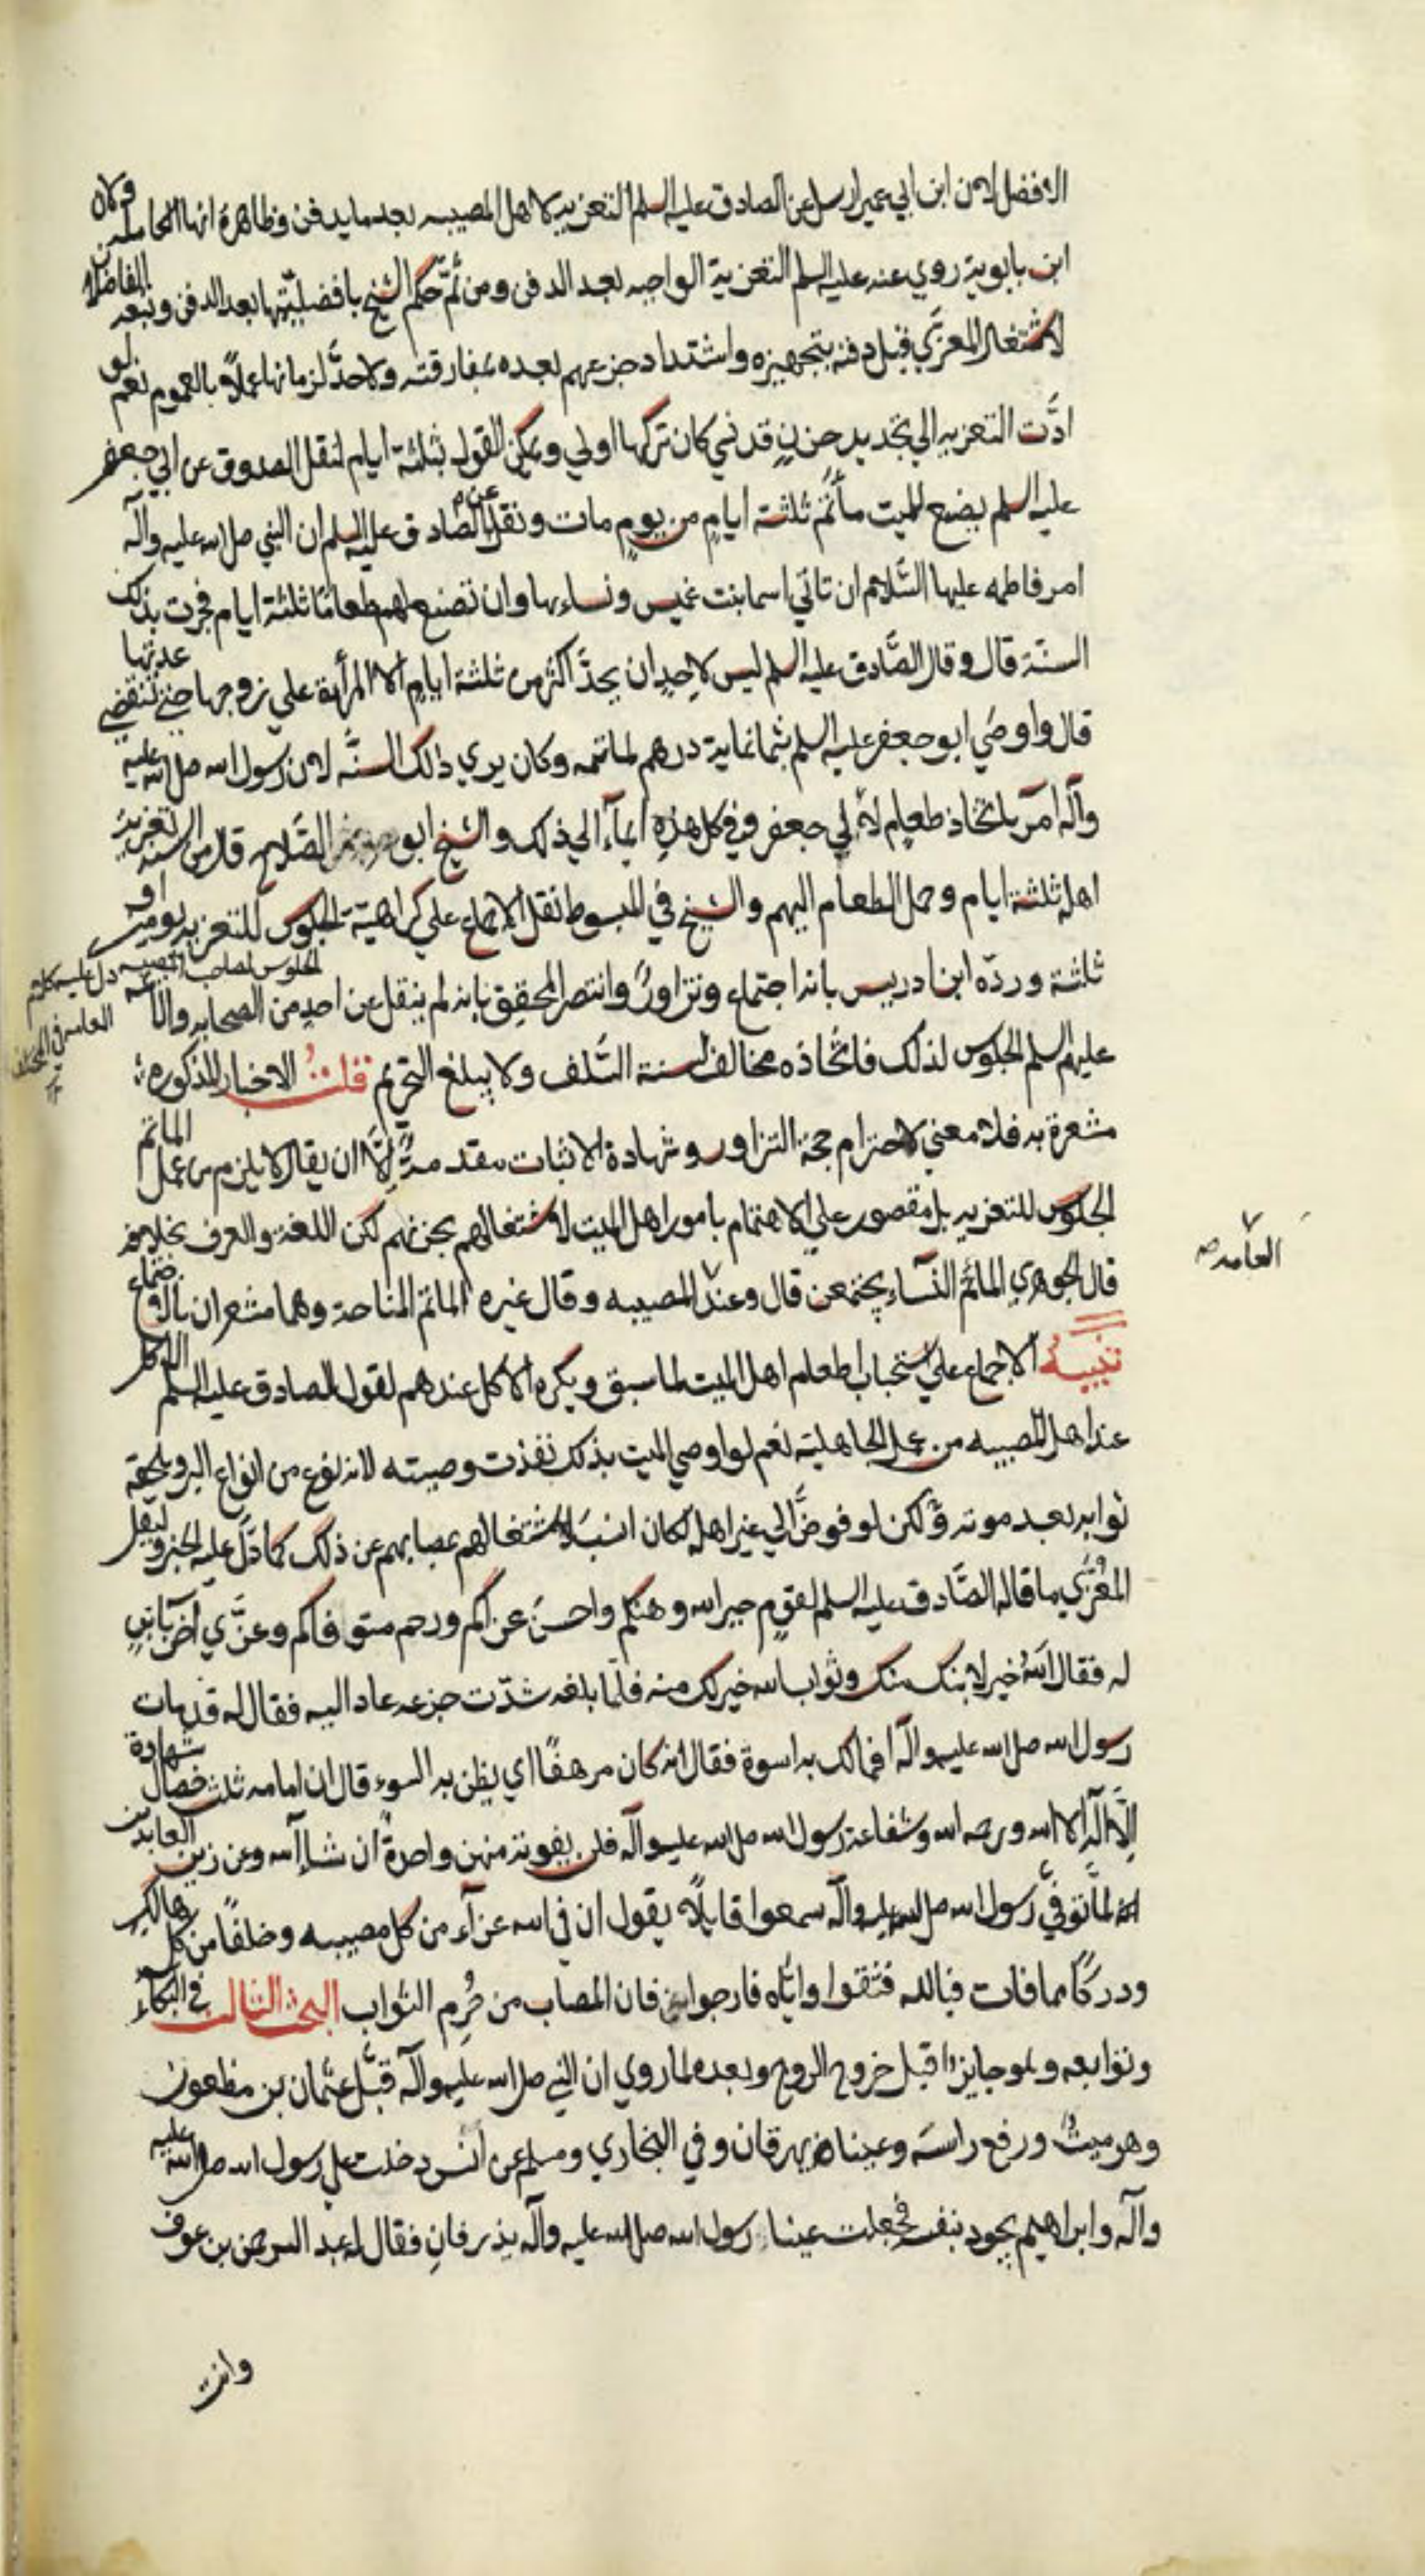 الافضل لان ابن ابي عمير ارسل عن الصادق عليه السلم التعزية لاهل المصيبه بعد ما يدفن وظاهره انها الكاملة ولان
ابن بابوية روي عنه عليه السلم التعزية الواجبه بعد الدفن ومن ثمّ حكم الشيخ بافضليّتها بعد الدفن وتبعه الفاضلان
لاشتغال المعزَّي قبل دفنه بتجهيزه واشتداد جزعهم بعده بمفارقته ولا حدَّ لزمانها عملاً بالعموم نعم لو
ادَّت التعزيه الي تجديد حزنٍ قد نسي كان تركها اولي ويمكن القول بثلثة ايام لنقل الصدوق عن ابي جعفر
عليه السلم يصنع للميت مأتم ثلثة ايامٍ من يومٍ مات ونقل عن الصادق عليه السلم ان النبي صل الله عليه وآله
امر فاطمه عليها السَّلام ان تاتي اسما بنت عميس ونساءها وان تصنع لهم طعامًا ثلثة ايام فجرت بذلك
السنّة قال وقال الصَّادق عليه السلم ليس لاحدٍ ان يحدَّ اكثر من ثلثة ايامٍ الا المرأة علي زوجها حتي تنقضي عدتها
قال واوصَي ابو جعفر عليه السلم بثمانماية درهم لماتمه وكان يري ذالك السنَّه لان رسول الله صل الله عليه
وآله امر باتخاذ طعامٍ لآل جعفر وفي كل هذه ايماء الي ذلك والشيخ ابو الصَّلاح قال من السنه تعزية
اهله ثلثة ايام وحمل الطعام اليهم والشيخ في المبسوط نقل الاجماع علي كراهيّة الجلوس للتعزيه يومين او
ثلثة وردّه ابن ادريس بانه اجتماع وتزاورٌ وانتصر المحقق بانه لم ينقل عن احدٍ من الصحابه والائمه
الجلوس لصاحب المصيبه دل عليه كلام
عليهم السلم الجلوس لذلك فاتخاذه مخالف لسنة السَّلف ولا يبلغ التحريم قلتُ الاخبار المذكوره
مشعرة به فلا معني لاحترام حجة التزاور وشهادة الاثبات مقدمةٌ إلّا ان يقال لا يلزم من عمل الماتم
الجلوس للتعزيه بل مقصور علي الاهتمام بامور اهل الميت لاشتغالهم بحزنهم لكن اللغة والعرف بخلافه
العامد ص
قال الجوهري الماتم النسآء يجتمعن قال وعند المصيبه وقال غيره الماتم المناحة وهما مشعران بالاجتماع
تنبيهٌ الاجماع علي استحباب اطعام اهل الميت لما سبق ويكره الاكل عندهم لقول الصادق عليه السلم الاكل
عند اهل المصيبه من عمل الجاهلية نعم لو اوصي الميت بذلك نفذت وصيته لانه نوع من انواع البر ويلحقه
ثوابه بعد موته ولكن لو فوضَّ الي غير اهله لكان انسب لاشتغالهم بمصابهم عن ذلك كما دَلَّ عليه الخبر وليقل
المعزَّي ما قاله الصَّادق عليه السلم لقومٍ جبر الله وهنكم واحسنَ عزاكم ورحم متوفاكم وعزَّي آخر بابنٍ
له فقال اللهُ خير لابنك منك وثواب الله خير لك منه فلمّا بلغه شدّت جزعه عاد اليه فقال له قد مات
رسول الله صل الله عليه وآله افمالك به اسوة فقال انه كان مرهفًا اي يظن به السوء قال ان امامه ثلث خصال شهادة
الّا اله الا الله ورحمه الله وشفاعة رسول الله صل الله عليه وآله فلن يفوته منهن واحدةٌ ان شاء الله وعن زين العابدين
انه لمَّا توفيَّ رسول الله صل الله عليه وآله سمعوا قايلاً يقول ان في الله عزآء من كل مصيبه وخلفًا من كل هالك
ودركًا مما فات فبالله فثقوا وايَّاه فارجوا فان المصاب من حُرِم الثواب البحث الثالث في البكآء
وتوابعه وهو جايزٌ قبل خروج الروح وبعده لما روي ان النبي صل الله عليه وآله قبَّل عثمان بن مظعون
وهو ميتٌ ورفع راسَه وعيناه تهرقان وفي البخاري ومسلم عن انس دخلت علي رسول الله صل الله عليه
وآله وابراهيم يجود بنفسه فجعلت عينا رسول الله صل الله عليه وآله يذرفانِ فقال له عبد الرحمن بن عوف
وانت